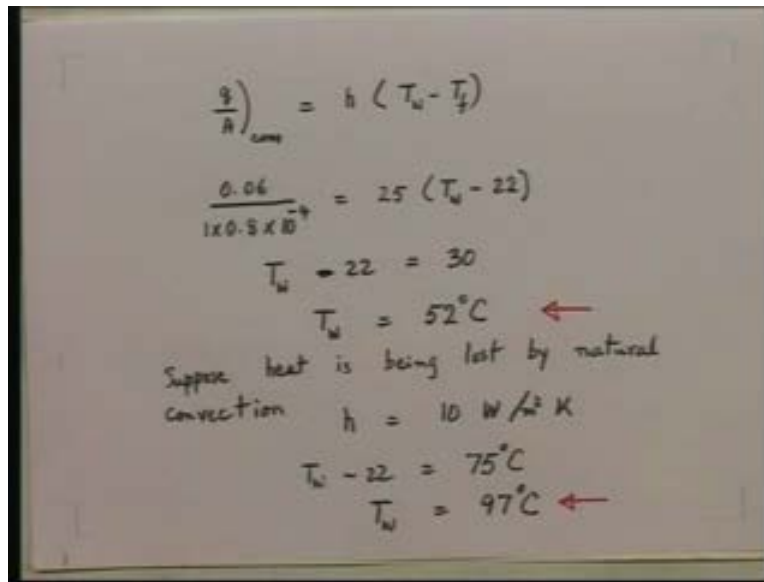 q/A)conv = h (Tw - Tf)
0.06 / 1x0.8x10^-4 = 25 (Tw - 22)
Tw - 22 = 30
Tw = 52°C ←
Suppose heat is being lost by natural
convection h = 10 W/m² K
Tw - 22 = 75°C
Tw = 97°C ←